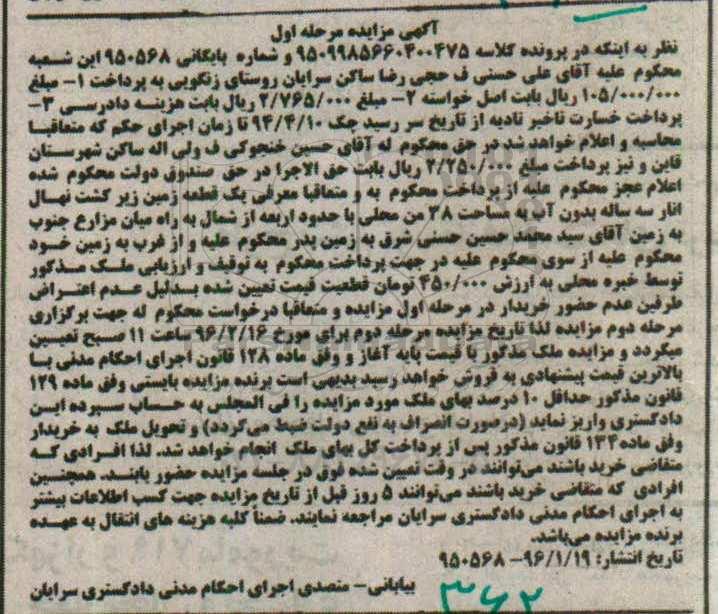 آگهی مزایده مرحله اول
نظر به اینکه در پرونده کلاسه ۹۵۰۹۹۸۵۶۶۰۴۰۰۴۷۵ و شماره بایگانی ۹۵۰۵۶۸ این شعبه
محکوم علیه آقای علی حسنی ف حجی رضا ساکن سرایان روستای زنگویی به پرداخت ۱- مبلغ
۱۰۵/۰۰۰/۰۰۰ ریال بابت اصل خواسته ۲- مبلغ ۲/۷۶۵/۰۰۰ ریال بابت هزینه دادرسی ۳-
پرداخت خسارت تاخیر تادیه از تاریخ سر رسید چک ۹۴/۴/۱۰ تا زمان اجرای حکم که متعاقبا
محاسبه و اعلام خواهد شد در حق محکوم له آقای حسین خنجوکی ف ولی اله ساکن شهرستان
قاین و نیز پرداخت مبلغ ۲/۲۵۰/۰۰۰ ریال بابت حق الاجرا در حق صندوق دولت محکوم شده
اعلام عجز محکوم علیه از پرداخت محکوم به و متعاقبا معرفی یک قطعه زمین زیر کشت نهال
انار سه ساله بدون آب به مساحت ۳۸ من محلی با حدود اربعه از شمال به راه میان مزارع جنوب
به زمین آقای سید محمد حسین حسنی شرق به زمین پدر محکوم علیه و از غرب به زمین خود
محکوم علیه از سوی محکوم علیه در جهت پرداخت محکوم به توقیف و ارزیابی ملک مذکور
توسط خبره محلی به ارزش ۴۵۰/۰۰۰ تومان قطعیت قیمت تعیین شده بدلیل عدم اعتراض
طرفین عدم حضور خریدار در مرحله اول مزایده و متعاقبا درخواست محکوم له جهت برگزاری
مرحله دوم مزایده لذا تاریخ مزایده مرحله دوم برای مورخ ۹۶/۲/۱۶ ساعت ۱۱ صبح تعیین
میگردد و مزایده ملک مذکور با قیمت پایه آغاز و وفق ماده ۱۲۸ قانون اجرای احکام مدنی با
بالاترین قیمت پیشنهادی به فروش خواهد رسید بدیهی است برنده مزایده بایستی وفق ماده ۱۲۹
قانون مذکور حداقل ۱۰ درصد بهای ملک مورد مزایده را فی المجلس به حساب سپرده این
دادگستری واریز نماید (درصورت انصراف به نفع دولت ضبط می‌گردد) و تحویل ملک به خریدار
وفق ماده۱۳۴ قانون مذکور پس از پرداخت کل بهای ملک انجام خواهد شد. لذا افرادی که
متقاضی خرید باشند می‌توانند در وقت تعیین شده فوق در جلسه مزایده حضور یابند. همچنین
افرادی که متقاضی خرید باشند می‌توانند ۵ روز قبل از تاریخ مزایده جهت کسب اطلاعات بیشتر
به اجرای احکام مدنی دادگستری سرایان مراجعه نمایند. ضمناً کلیه هزینه های انتقال به عهده
برنده مزایده می‌باشد.
تاریخ انتشار: ۹۶/۱/۱۹- ۹۵۰۵۶۸
بیابانی- متصدی اجرای احکام مدنی دادگستری سرایان
۳۶۲